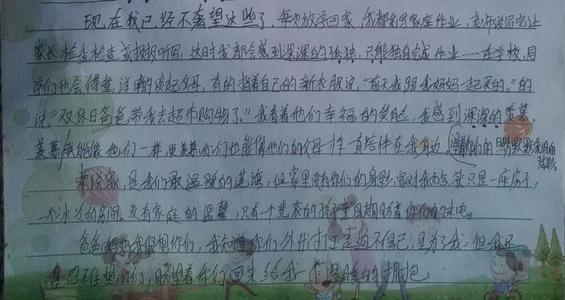 现在我已经不奢望这些了，每次放学回家，我都会写家庭作业，老师说写完让
家长检查检查或报报听写，这时我都会感到深深的孤独，只能独自完成作业……在学校，同
学们也会得意洋洋的谈起父母，有的指着自己的新衣服说，"前天我跟我妈妈一起买的。"的
说"双休日爸爸带我去超市购物了。"我看着他们幸福的笑脸，我感到深深的羡慕，
羡慕能像他们一样，更羡慕你们也能像他们的父母一样一直陪伴在我身边
来说家，是我们最温暖的港湾，但家里没有你们的身影，家对我而言，只是一座房子，
一个冰冷的房间，没有家庭的温馨，只有一个孤寂的孩子望月期盼着你们的来电。
爸爸妈妈我很想你们，我知道你们外出打工是迫不得已，是为了我，但我还
是忍不住想你们，盼望着你们回来给我个温暖的拥抱